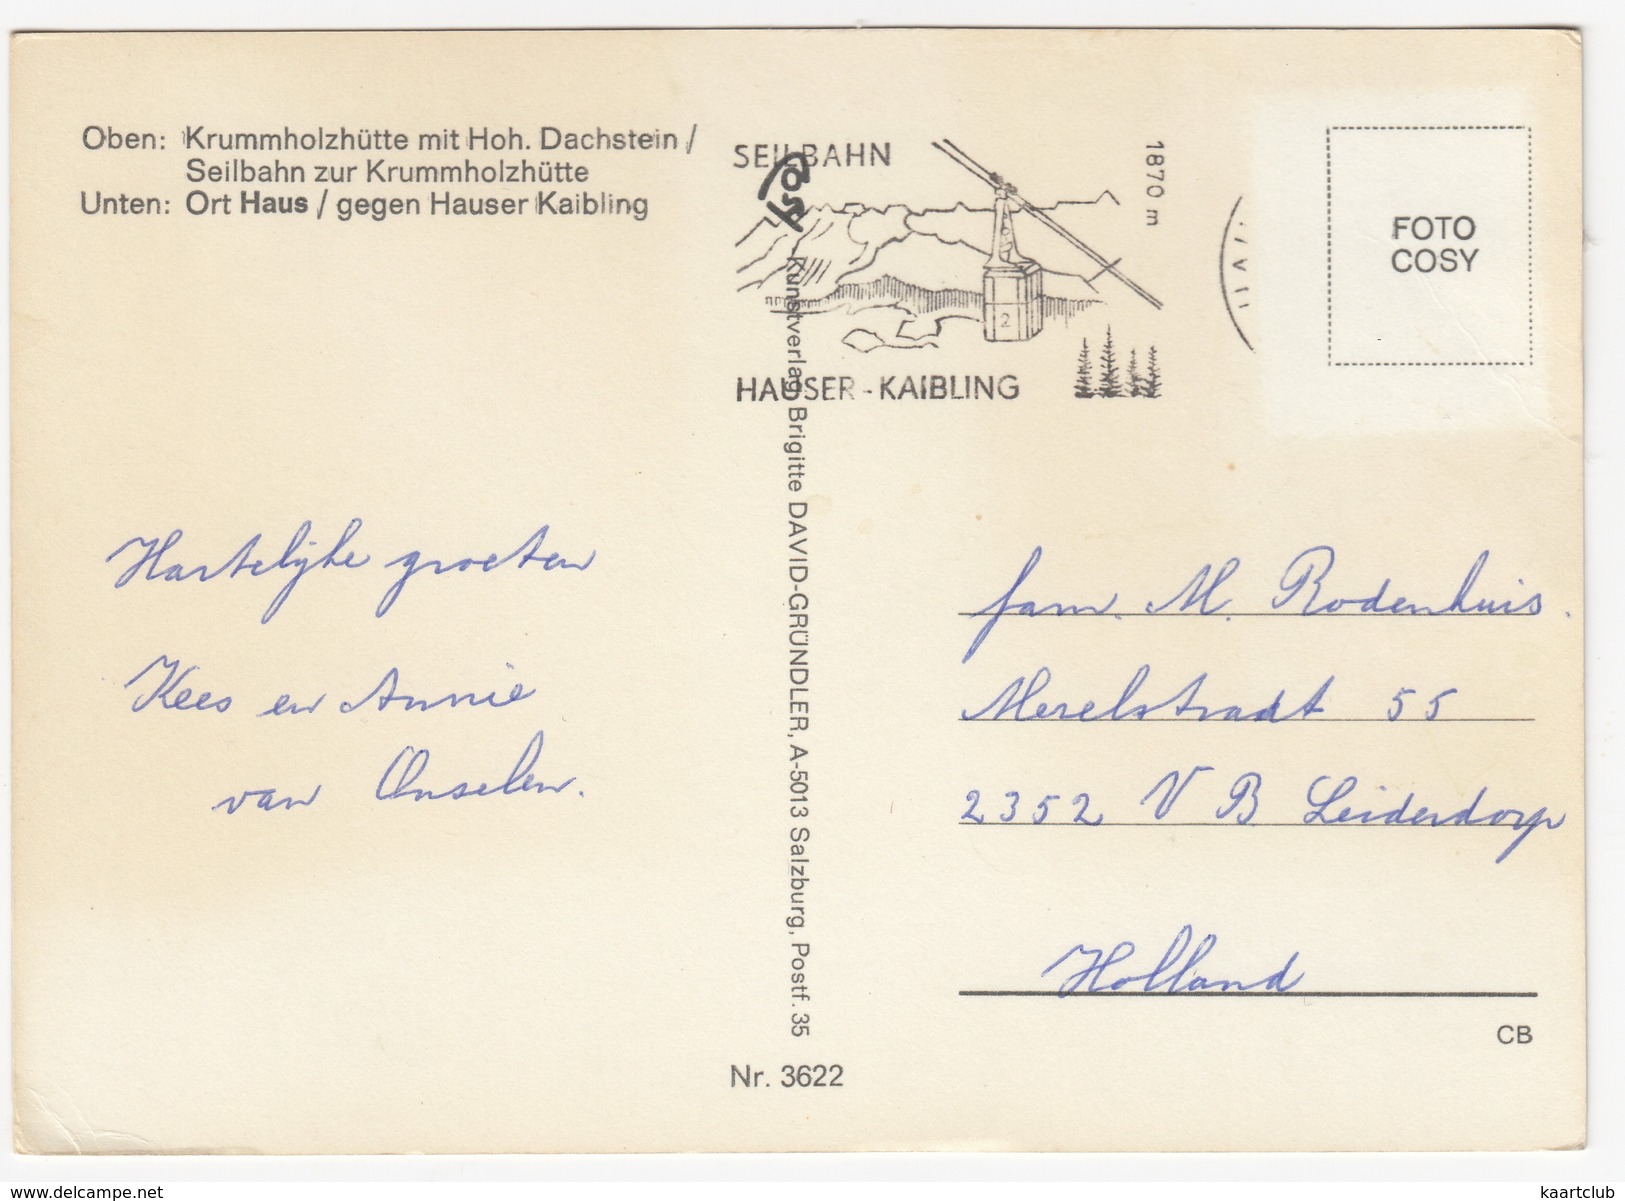 Oben: Krummholzhütte mit Hoh. Dachstein /
Seilbahn zur Krummholzhütte
Unten: Ort Haus / gegen Hauser Kaibling
SEILBAHN
1870 m
2
HAUSER - KAIBLING
FOTO
COSY
Kunstverlag Brigitte DAVID-GRÜNDLER, A-5013 Salzburg, Postf. 35
Hartelijke groeten
Kees en Annie
van Onselen.
fam. M. Rodenhuis.
Merelstraat 55
2352 VB Leiderdorp
Holland
CB
Nr. 3622
http://www.delcampe.net
kaartclub